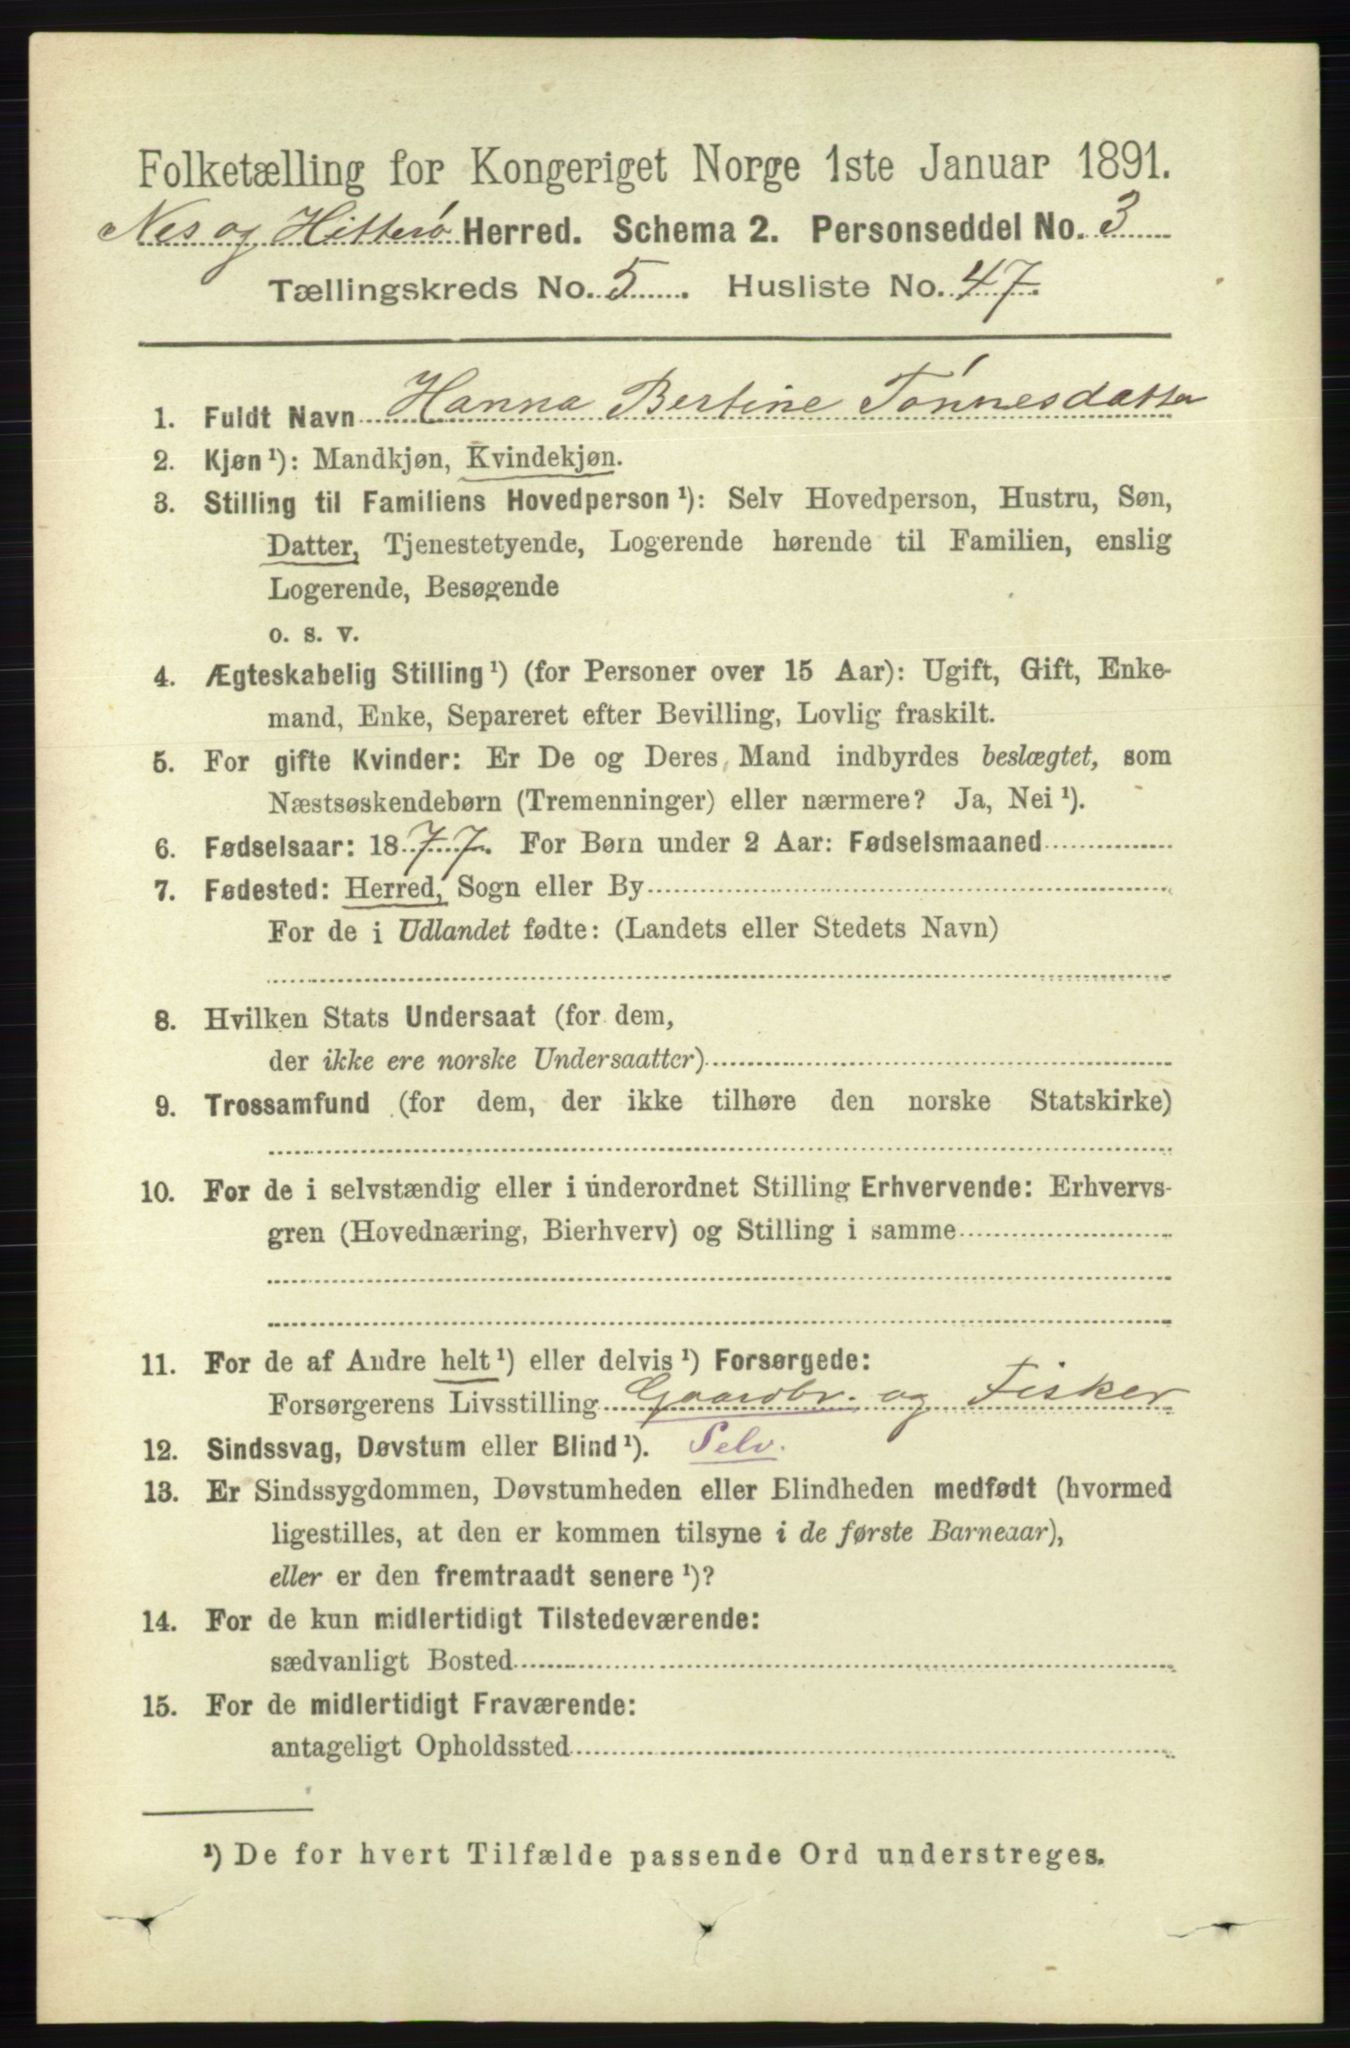 Folketælling for Kongeriget Norge 1ste Januar 1891.
Nes og Hitterø Herred. Schema 2. Personseddel No. 3
Tællingskreds No. 5. Husliste No. 47.
1. Fuldt Navn Hanna Bertine Tónnesdatter
2. Kjøn ¹): Mandkjøn, Kvindekjøn.
3. Stilling til Familiens Hovedperson ¹): Selv Hovedperson, Hustru, Søn,
Datter, Tjenestetyende, Logerende hørende til Familien, enslig
Logerende, Besøgende
o. s. v.
4. Ægteskabelig Stilling ¹) (for Personer over 15 Aar): Ugift, Gift, Enke-
mand, Enke, Separeret efter Bevilling, Lovlig fraskilt.
5. For gifte Kvinder: Er De og Deres Mand indbyrdes beslægtet, som
Næstsøskendebørn (Tremenninger) eller nærmere? Ja, Nei ¹).
6. Fødselsaar: 1877. For Børn under 2 Aar: Fødselsmaaned
7. Fødested: Herred, Sogn eller By
For de i Udlandet fødte: (Landets eller Stedets Navn)
8. Hvilken Stats Undersaat (for dem,
der ikke ere norske Undersaatter)
9. Trossamfund (for dem, der ikke tilhøre den norske Statskirke)
10. For de i selvstændig eller i underordnet Stilling Erhvervende: Erhvervs-
gren (Hovednæring, Bierhverv) og Stilling i samme
11. For de af Andre helt ¹) eller delvis ¹) Forsørgede:
Forsørgerens Livsstilling Gaardbr. og Fisker
12. Sindssvag, Døvstum eller Blind ¹). Selv.
13. Er Sindssygdommen, Døvstumheden eller Blindheden medfødt (hvormed
ligestilles, at den er kommen tilsyne i de første Barneaar),
eller er den fremtraadt senere ¹)?
14. For de kun midlertidigt Tilstedeværende:
sædvanligt Bosted
15. For de midlertidigt Fraværende:
antageligt Opholdssted
¹) De for hvert Tilfælde passende Ord understreges.